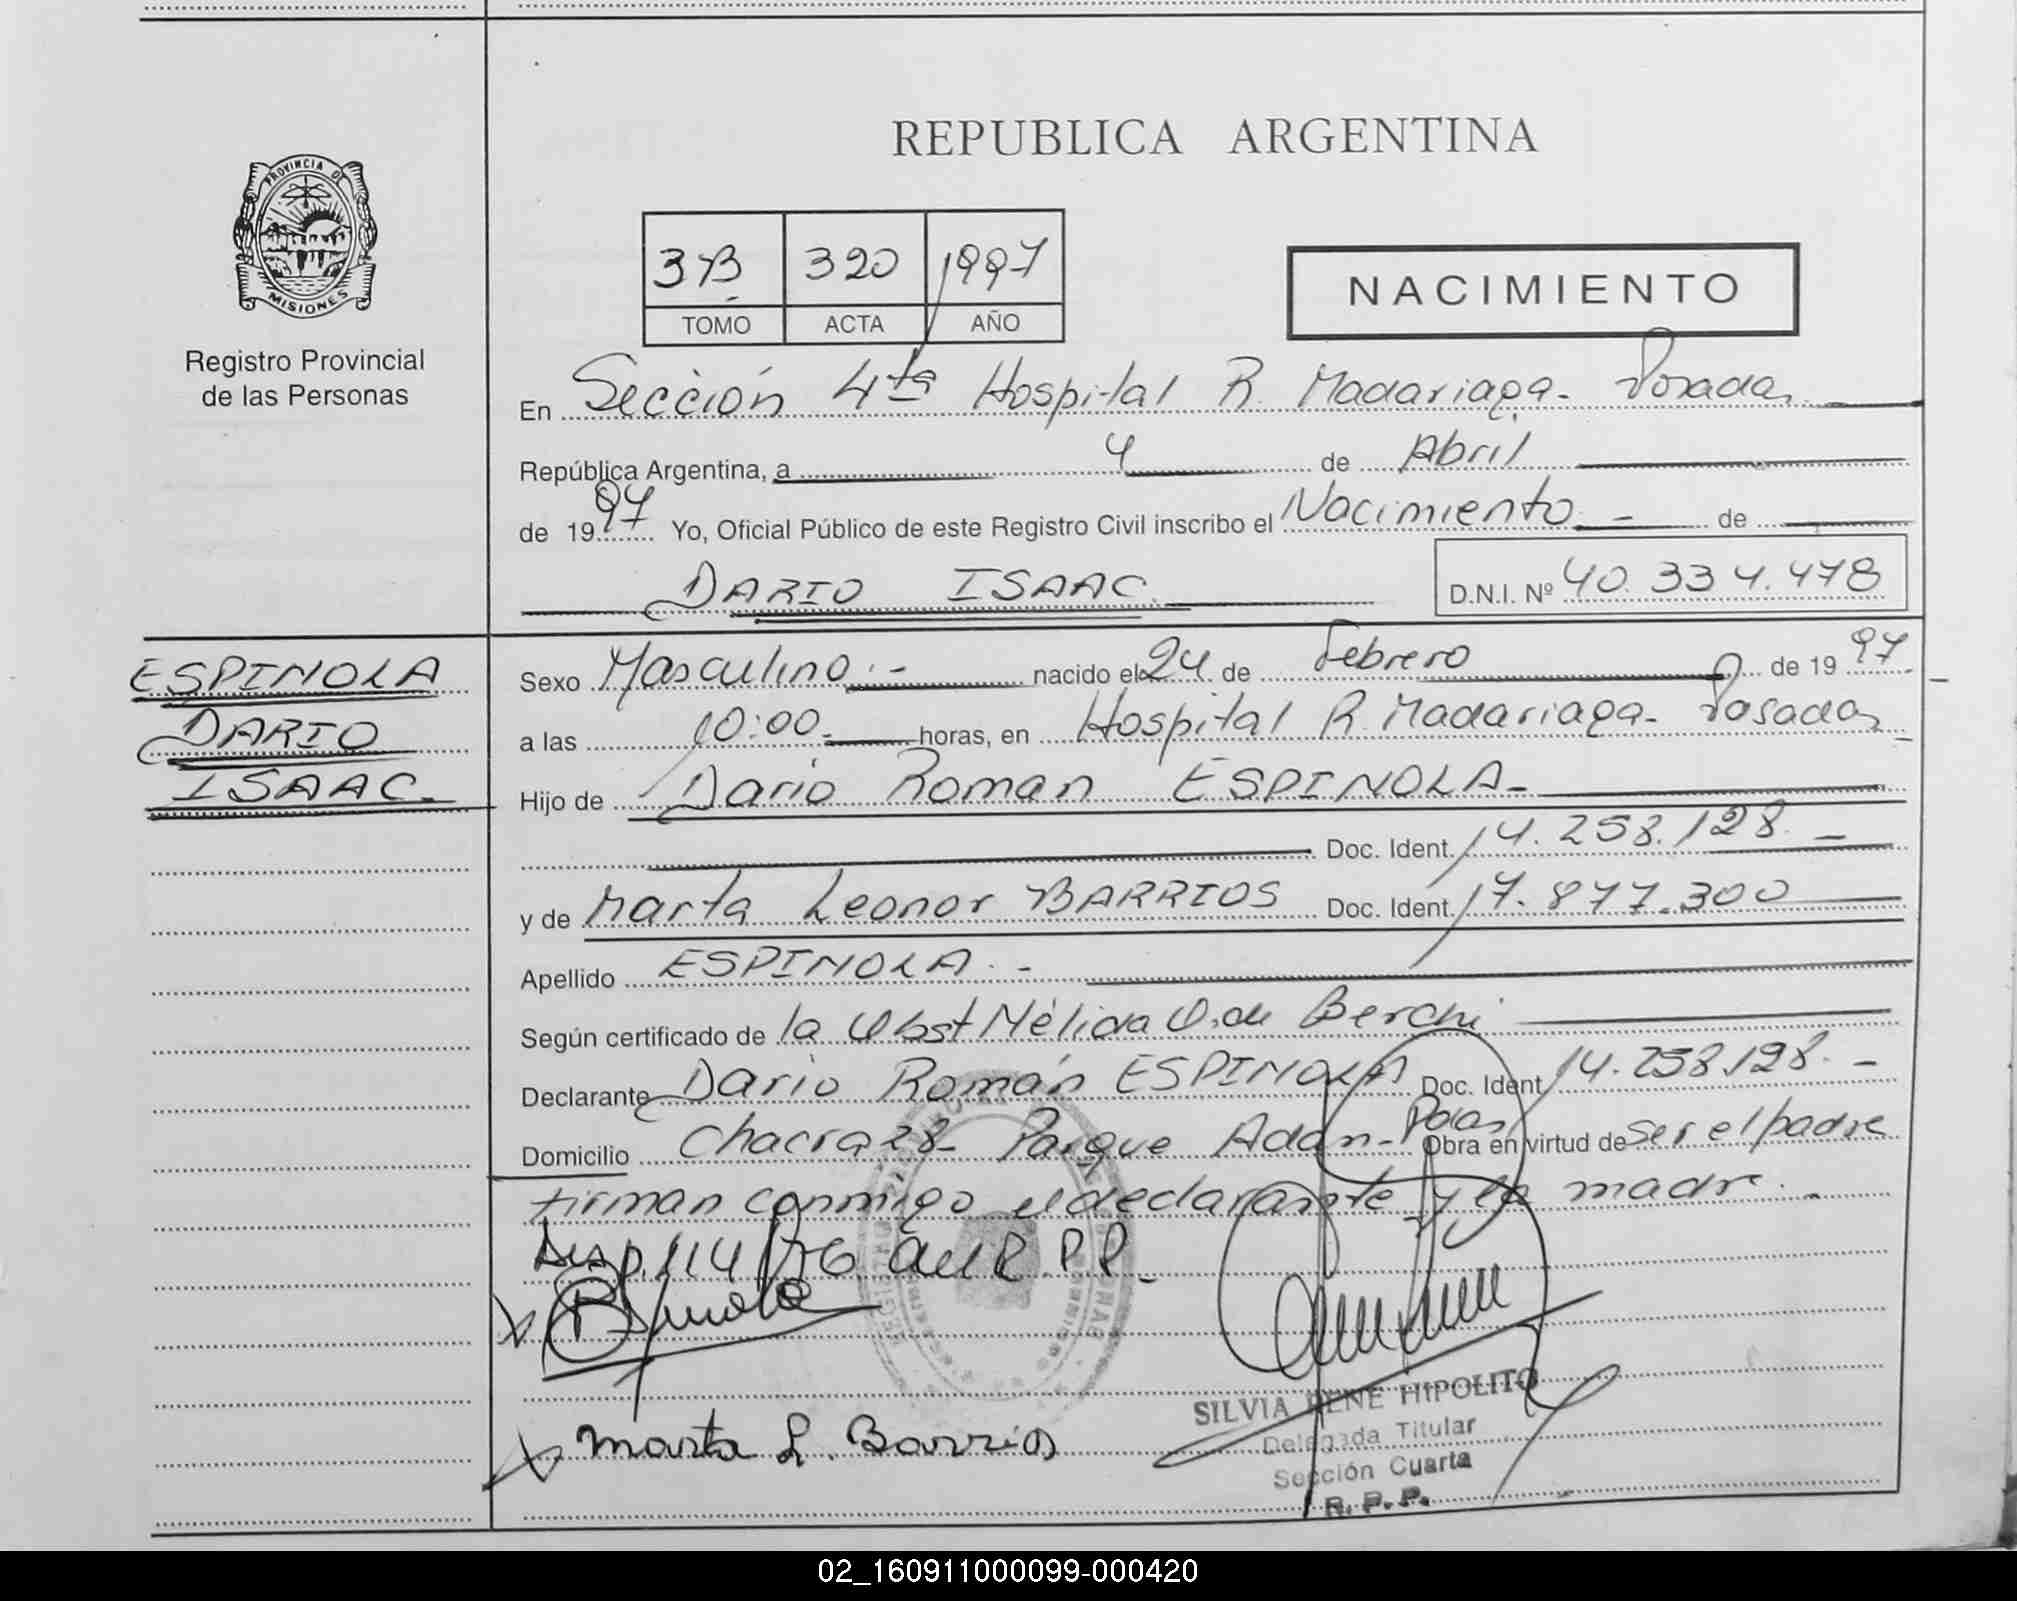 REPUBLICA ARGENTINA
PROVINCIA DE
MISIONES
Registro Provincial
de las Personas
3B 320 1997
TOMO ACTA AÑO
NACIMIENTO
En Sección 4ta Hospital R. Madariaga - Posadas
República Argentina, a 4 de Abril
de 1997 Yo, Oficial Público de este Registro Civil inscribo el Nacimiento de
DARIO ISAAC. D.N.I. Nº 40.334.478
ESPINOLA
DARIO
ISAAC.
Sexo Masculino.- nacido el 24 de Febrero de 1997
a las 10:00 horas, en Hospital R. Madariaga - Posadas
Hijo de Dario Roman ESPINOLA -
Doc. Ident. 14.258.128. -
y de Marta Leonor BARRIOS Doc. Ident. 17.877.300
Apellido ESPINOLA. -
Según certificado de la Obst Nélida O. de Berchi
Declarante Dario Román ESPINOLA Doc. Ident. 14.258.128. -
Domicilio Chacra 28 - Parque Adam - Pdas Obra en virtud de ser el padre
firman conmigo el declarante y la madre. -
Disp. 114/76 del R.P.P. -
Marta L. Barrios
SILVIA RENE HIPOLITO
Delegada Titular
Sección Cuarta
R. P. P.
02_160911000099-000420